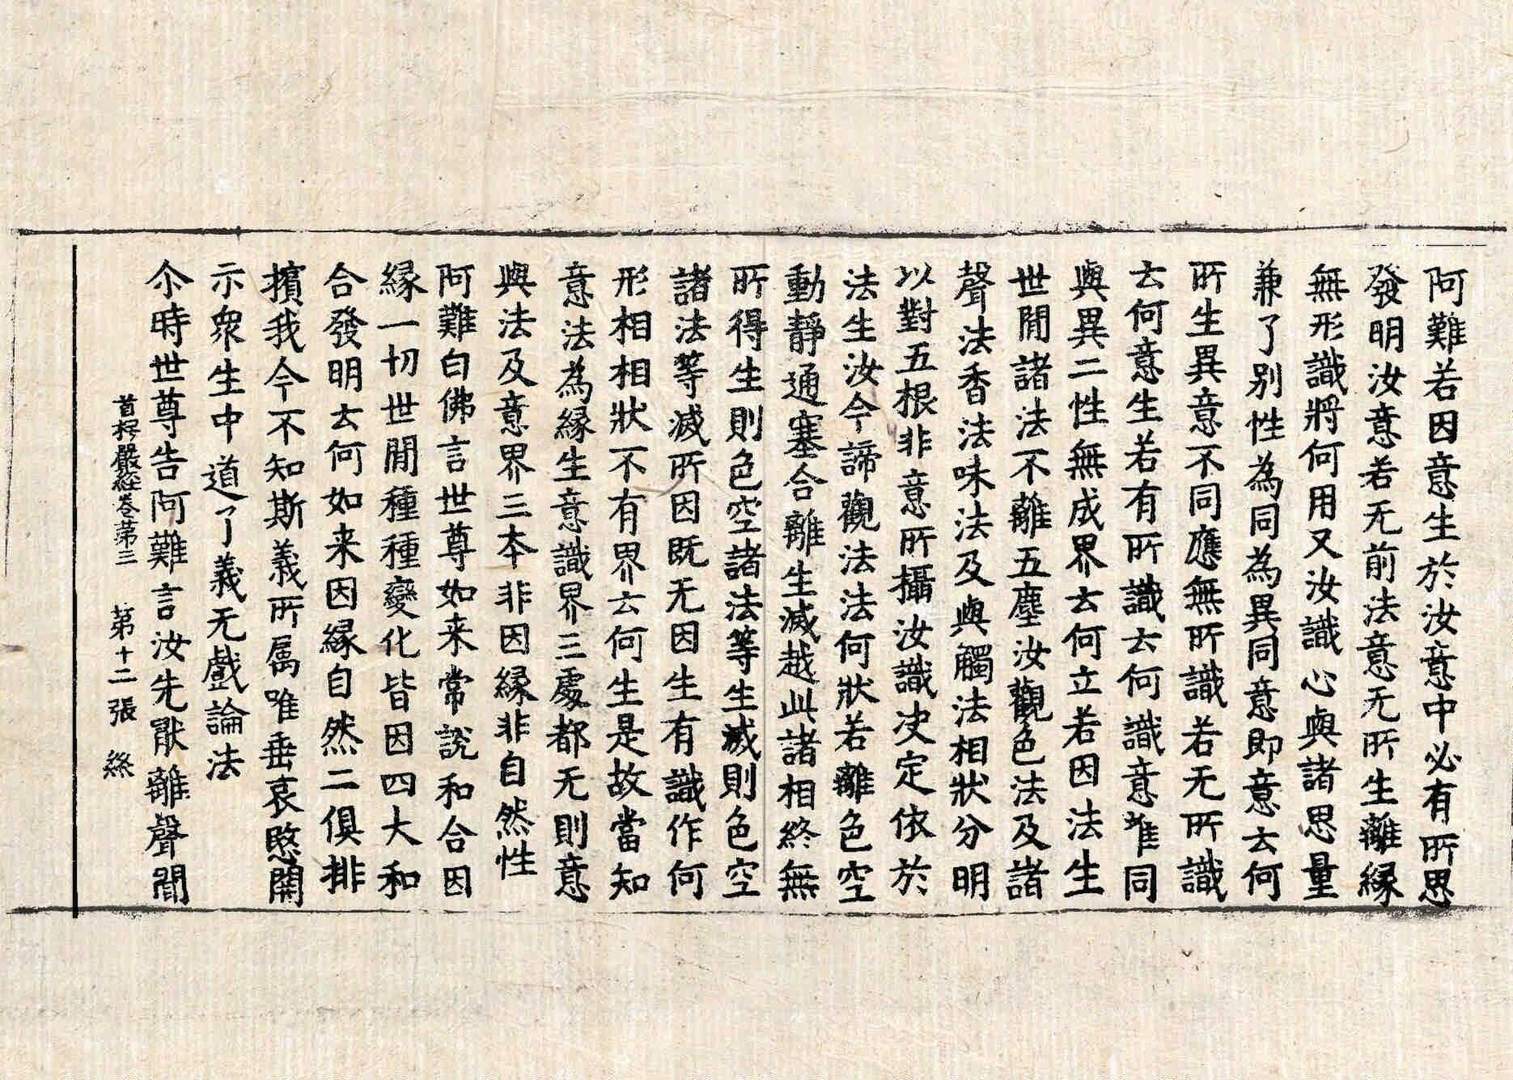 阿難若因意生於汝意中必有所思
發明汝意若无前法意无所生離緣
無形識將何用又汝識心與諸思量
兼了别性為同為異同意即意云何
所生異意不同應無所識若无所識
云何意生若有所識云何識意唯同
與異二性無成界云何立若因法生
世閒諸法不離五塵汝觀色法及諸
聲法香法味法及與觸法相狀分明
以對五根非意所攝汝識决定依於
法生汝今諦觀法法何狀若離色空
動靜通塞合離生滅越此諸相終無
所得生則色空諸法等生滅則色空
諸法等滅所因既无因生有識作何
形相相狀不有界云何生是故當知
意法為緣生意識界三處都无則意
與法及意界三本非因緣非自然性
阿難白佛言世尊如来常說和合因
緣一切世閒種種變化皆因四大和
合發明云何如来因緣自然二俱排
擯我今不知斯義所属唯垂哀愍開
示衆生中道了義无戲論法
尒時世尊告阿難言汝先猒離聲聞
首楞嚴経卷第三 第十二張 終